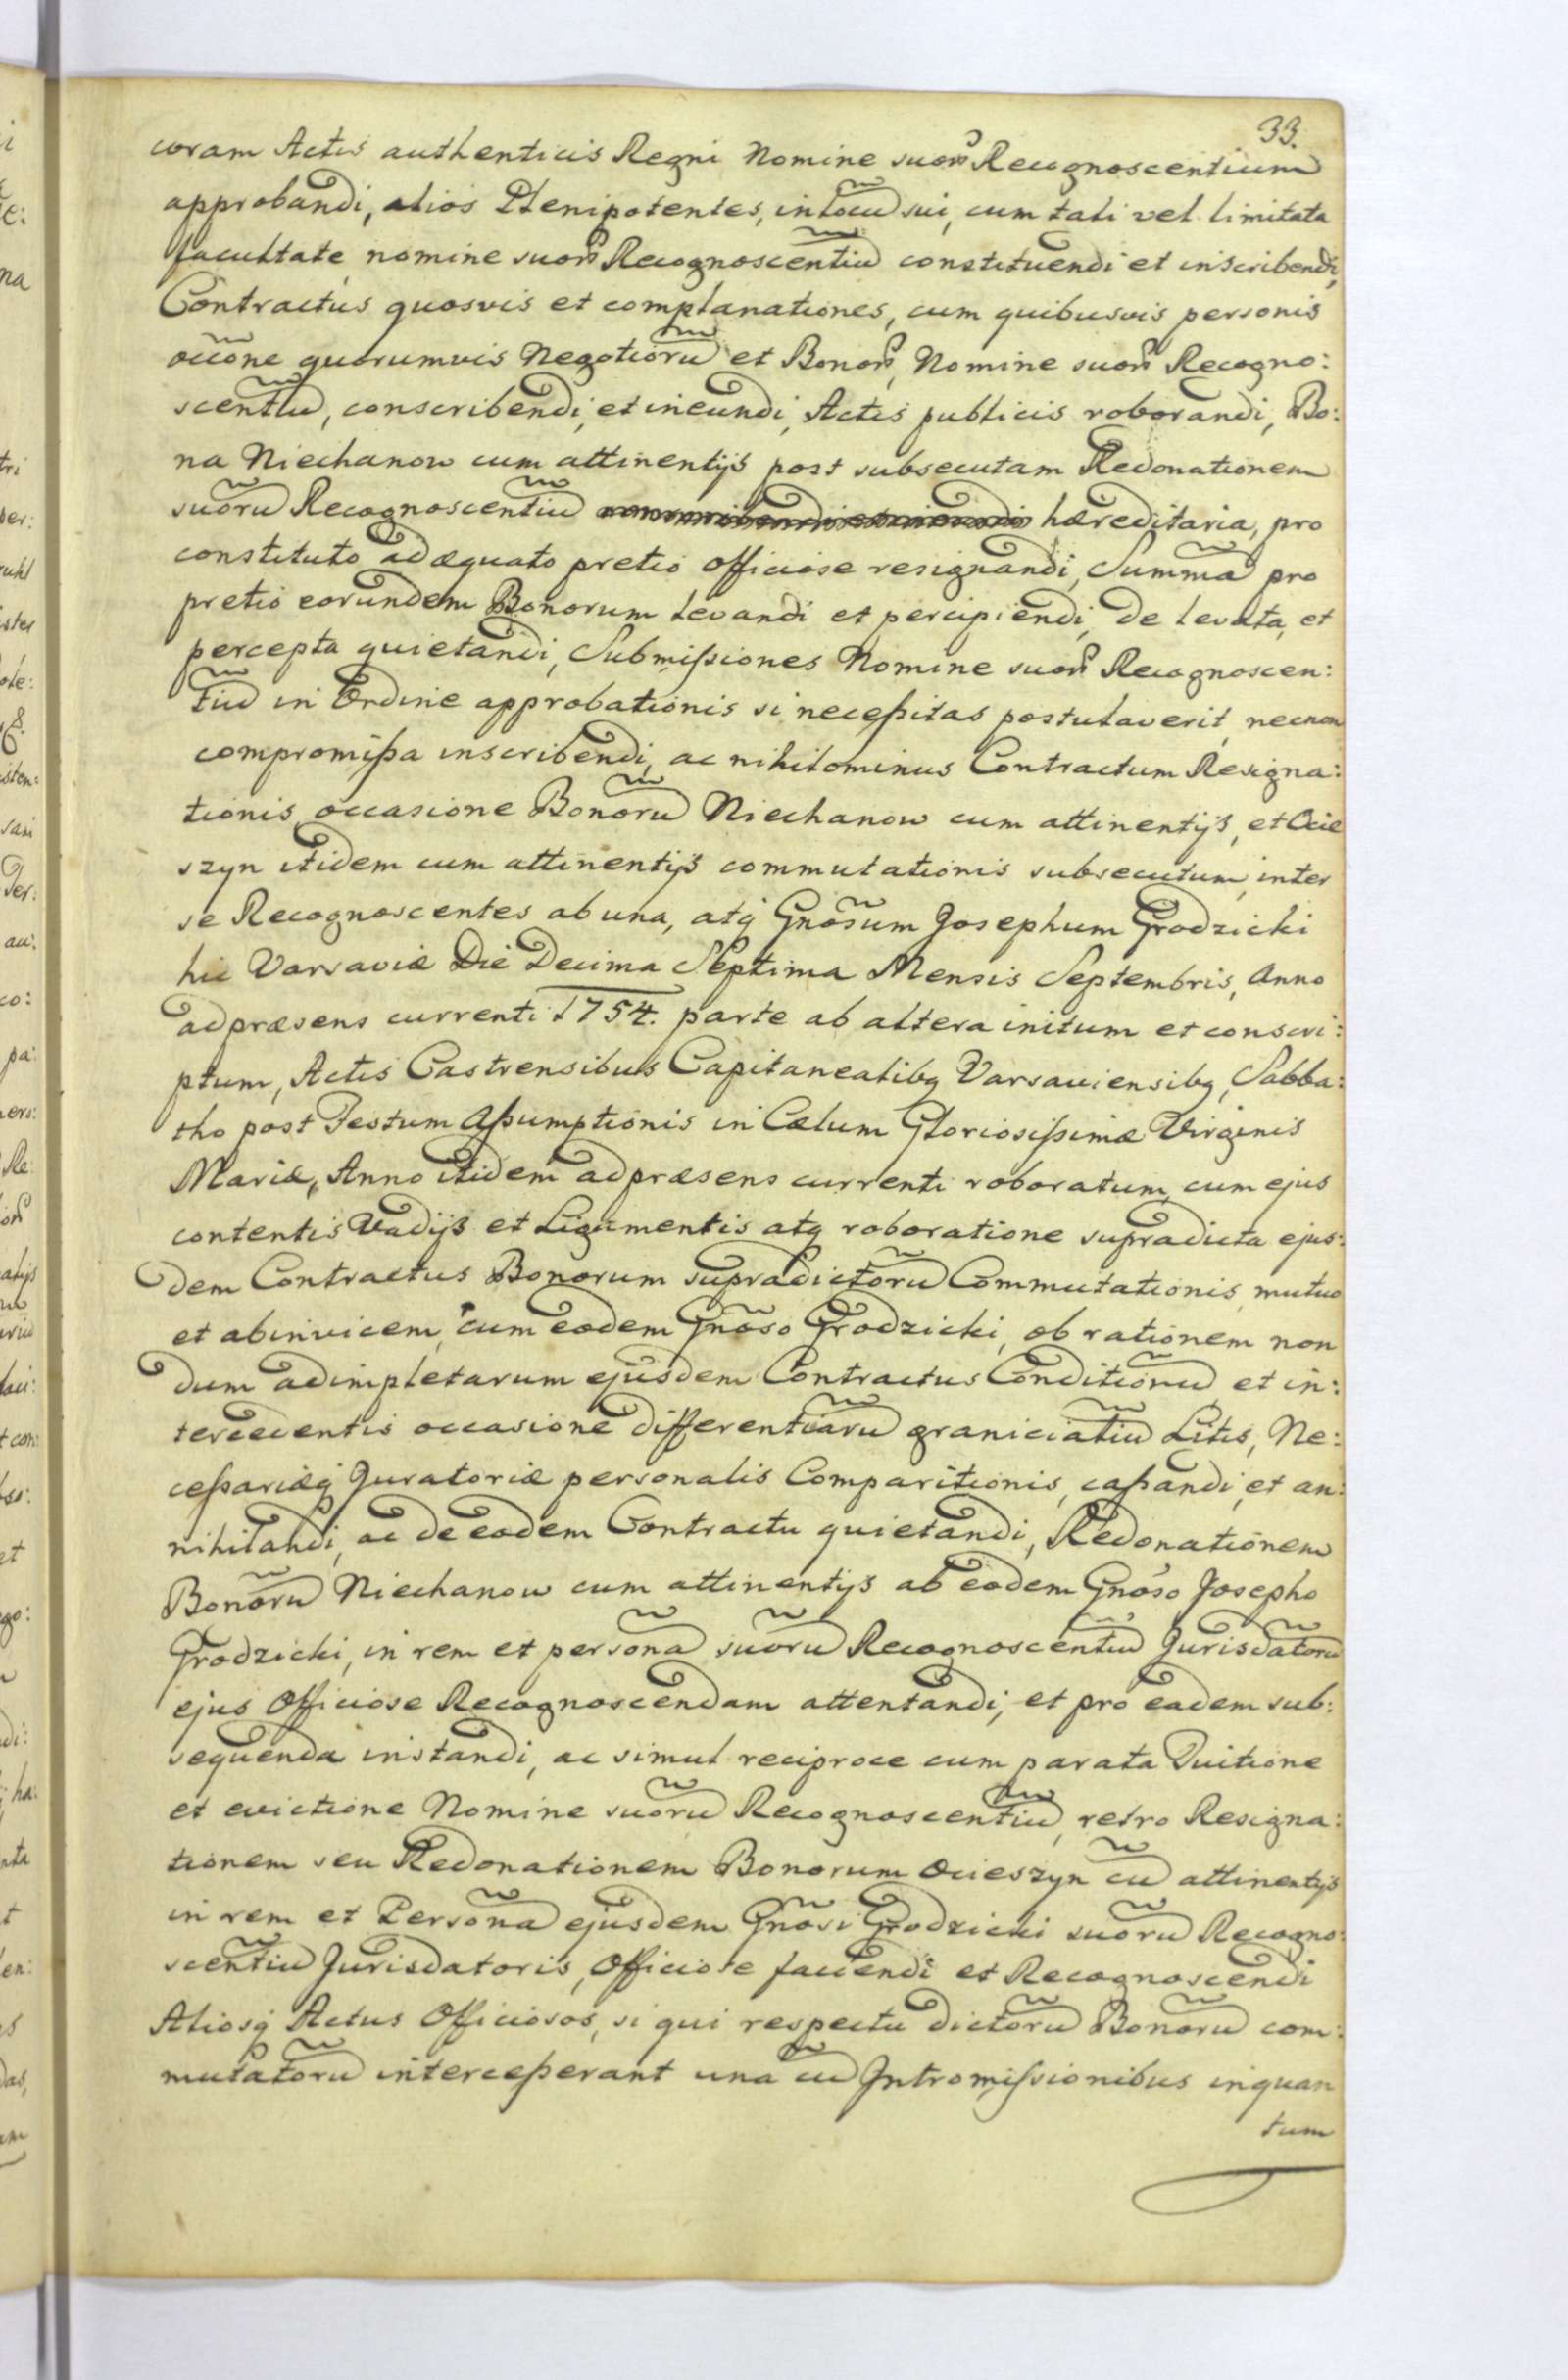 33.
coram Actis authenticis Regni Nomine suor̃ Recognoscentium
approbandi, alios Plenipotentes, in locũ sui, cum tali vel limitata
facultate nomine suor̃ Recognoscentiũ constituendi et inscribendi,
Contractus quosvis et complanationes, cum quibusvis personis
occ̃one quorumvis Negotiorũ et Bonor̃, Nomine suor̃ Recogno:
scentiũ, conscribendi, et ineundi, Actis publicis roborandi, Bo:
na Niechanow cum attinentijs post subsecutam Redonationem
suorũ Recognoscentiũ hæreditaria, pro
constituto adæquato pretio officiose resignandi, Summã pro
pretio eorundem Bonorum levandi et percipiendi, de levata, et
percepta quietandi, Submißiones Nomine suor̃ Recognoscen:
tiũ in Ordine approbationis si neceßitas postulaverit, necnon
compromißa inscribendi, ac nihilominus Contractum Resigna:
tionis, occasione Bonorũ Niechanow cum attinentijs, et Ocie
szyn itidem cum attinentijs commutationis subsecutum, inter
se Recognoscentes ab una, atq́ Gnõsum Josephum Grodzicki
hic Varsaviæ Die Decima Septima Mensis Septembris, Anno
ad præsens currenti 1754. parte ab altera initum et conscri:
ptum, Actis Castrensibus Capitanealibq Varsaviensibq, Sabba:
tho post Festum Aßumptionis in Cælum Gloriosißimæ Virginis
Mariæ, Anno itidem ad præsens currenti roboratum, cum ejus
contentis Vadijs et Ligamentis atq roboratione supradicta ejus:
dem Contractus Bonorum supradictorũ Commutationis, mutuo
et abinvicem, cum eodem Gnõso Grodzicki, ob rationem non
dum adimpletarum ejusdem Contractus Conditionũ et in:
tercedentis occasione differentiarũ graniciatiũ Litis, Ne:
ceßariæq́ Juratoriæ personalis Comparitionis, caßandi, et an:
nihilandi, ac de eodem Contractu quietandi, Redonationem
Bonorũ Niechanow cum attinentijs ab eodem Gnõso Josepho
Grodzicki, in rem et personã suorũ Recognoscentiũ Jurisdatorũ
ejus Officiose Recognoscendam attentandi, et pro eadem sub:
sequenda instandi, ac simul reciproce cum parata Tuitione
et evictione Nomine suorũ Recognoscentiũ, retro Resigna:
tionem seu Redonationem Bonorum Ocieszyn cũ attinentijs
in rem et Personã ejusdem Gnõsi Grodzicki suorũ Recogno:
scentiũ Jurisdatoris, Officiose faciendi et Recognoscendi
Aliosq́ Actus Officiosos, si qui respectu dictorũ Bonorũ com:
mutatorũ interceßerant una cũ Intromißionibus inquan
tum